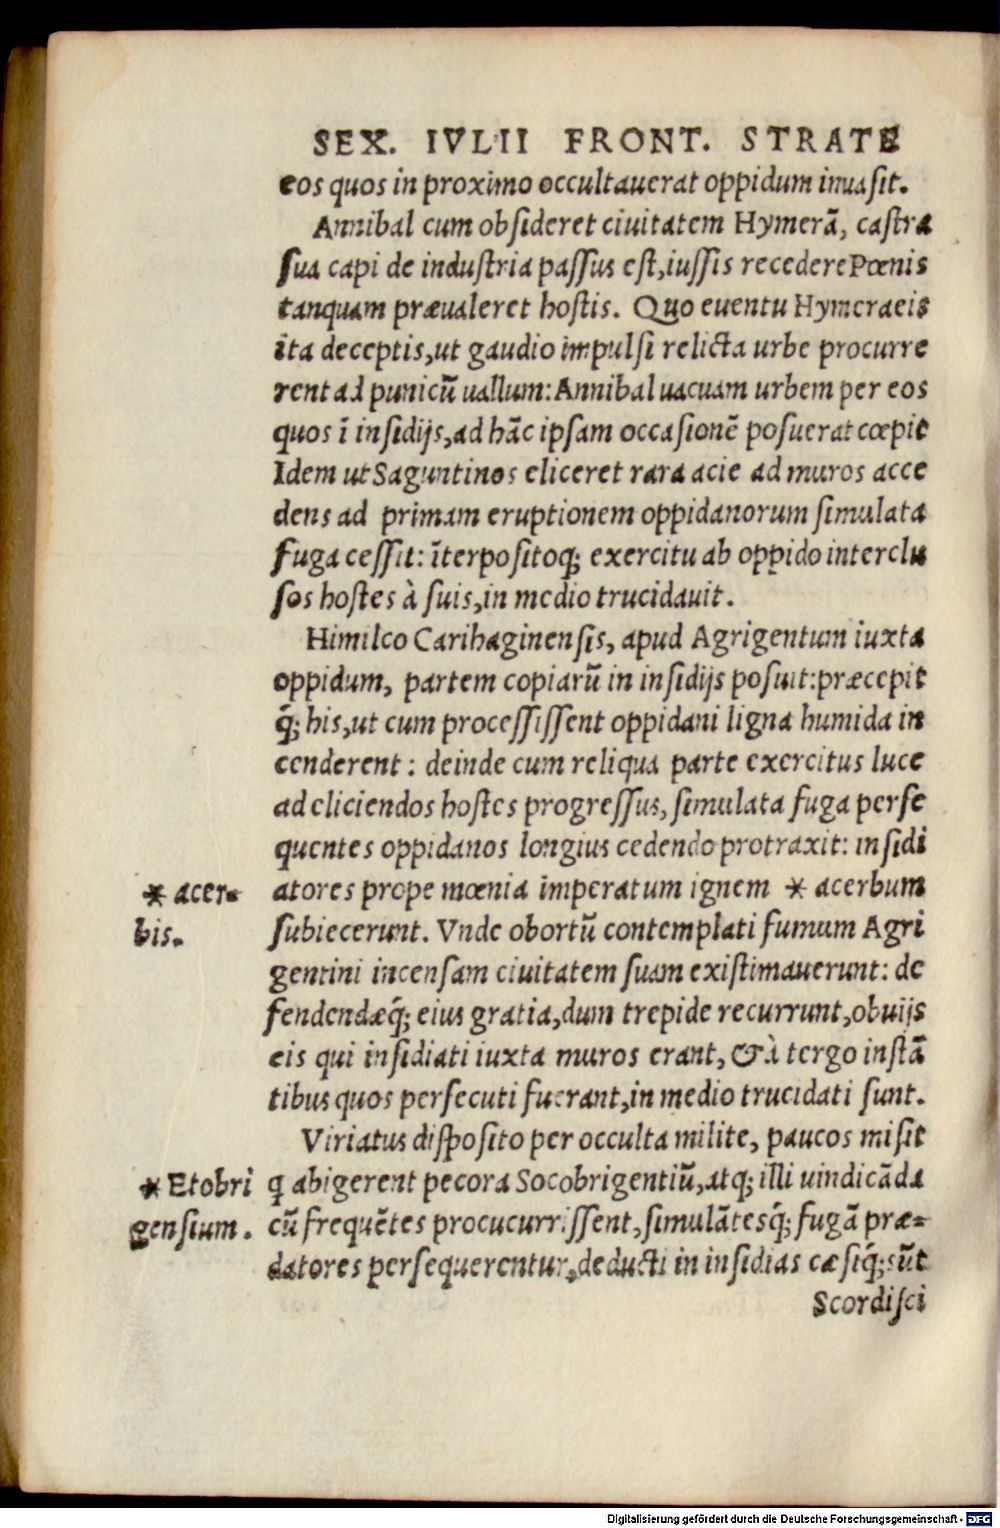 SEX. IVLII FRONT. STRATE
eos quos in proximo occultauerat oppidum inuasit.
Annibal cum obsideret ciuitatem Hymerā, castra
sua capi de industria passus est, iussis recedere Pœnis
tanquam præualeret hostis. Quo euentu Hymeraeis
ita deceptis, ut gaudio impulsi relicta urbe procurre
rent ad punicū uallum: Annibal uacuam urbem per eos
quos ī insidijs, ad hāc ipsam occasionē posuerat cœpit
Idem ut Saguntinos eliceret rara acie ad muros acce
dens ad primam eruptionem oppidanorum simulata
fuga cessit: īterpositoq; exercitu ab oppido interclu
sos hostes à suis, in medio trucidauit.
Himilco Carihaginensis, apud Agrigentum iuxta
oppidum, partem copiarū in insidijs posuit: præcepit
q́; his, ut cum processissent oppidani ligna humida in
cenderent: deinde cum reliqua parte exercitus luce
ad eliciendos hostes progressus, simulata fuga perse
quentes oppidanos longius cedendo protraxit: insidi
* acer-
bis.
atores prope mœnia imperatum ignem * acerbum
subiecerunt. Vnde obortū contemplati fumum Agri
gentini incensam ciuitatem suam existimauerunt: de
fendendæq́; eius gratia, dum trepide recurrunt, obuijs
eis qui insidiati iuxta muros erant, & à tergo instā
tibus quos persecuti fuerant, in medio trucidati sunt.
Viriatus disposito per occulta milite, paucos misit
* Etobri
gensium.
q abigerent pecora Socobrigentiū, atq; illi uindicāda
cū frequētes procucurrissent, simulātesq́; fugā præ-
datores persequerentur, deducti in insidias cæsiq́; sūt
Scordisci
Digitalisierung gefördert durch die Deutsche Forschungsgemeinschaft - DFG